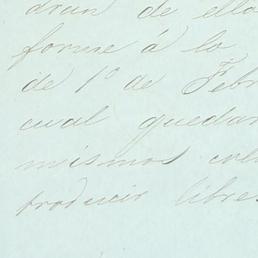 drán de ella
forme á lo
de 1º de Febr
cual quedar
mismos
producir libre